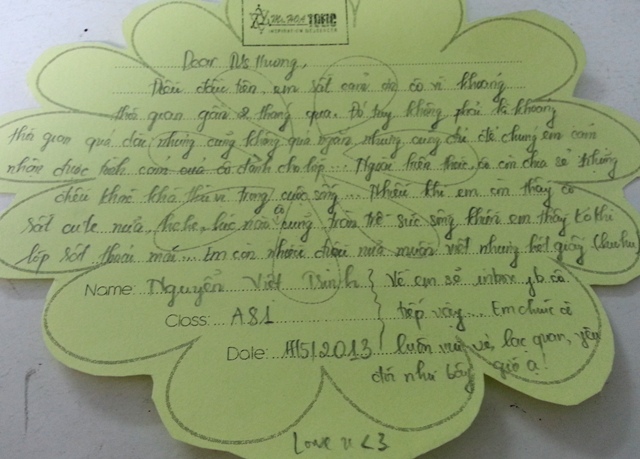 Ms HOA TOEIC
INSPIRATION DELIVERED
Dear Ms Hương,
Điều đầu tiên, em rất cảm ơn cô vì khoảng
thời gian gần 2 tháng qua. Đó tuy không phải là khoảng
thời gian quá dài, nhưng cũng không quá ngắn nhưng cũng đủ để chúng em cảm
nhận được tình cảm của cô dành cho lớp... Ngoài kiến thức, cô còn chia sẻ những
điều khác khá thú vị trong cuộc sống... Nhiều khi em còn thấy cô
rất cute nữa, hehe, lúc nào cô cũng tràn trề sức sống khiến em thấy cô thì
lớp rất thoải mái... Em còn nhiều điều nữa muốn viết nhưng hết giấy (huhu)
Name: Nguyễn Việt Trinh } Về em sẽ inbox fb cô
Class: A81 } tiếp vậy... Em chúc cô
Date: 11/5/2013 } luôn vui vẻ, lạc quan, yêu
đời như bây giờ ạ!
Love u <3